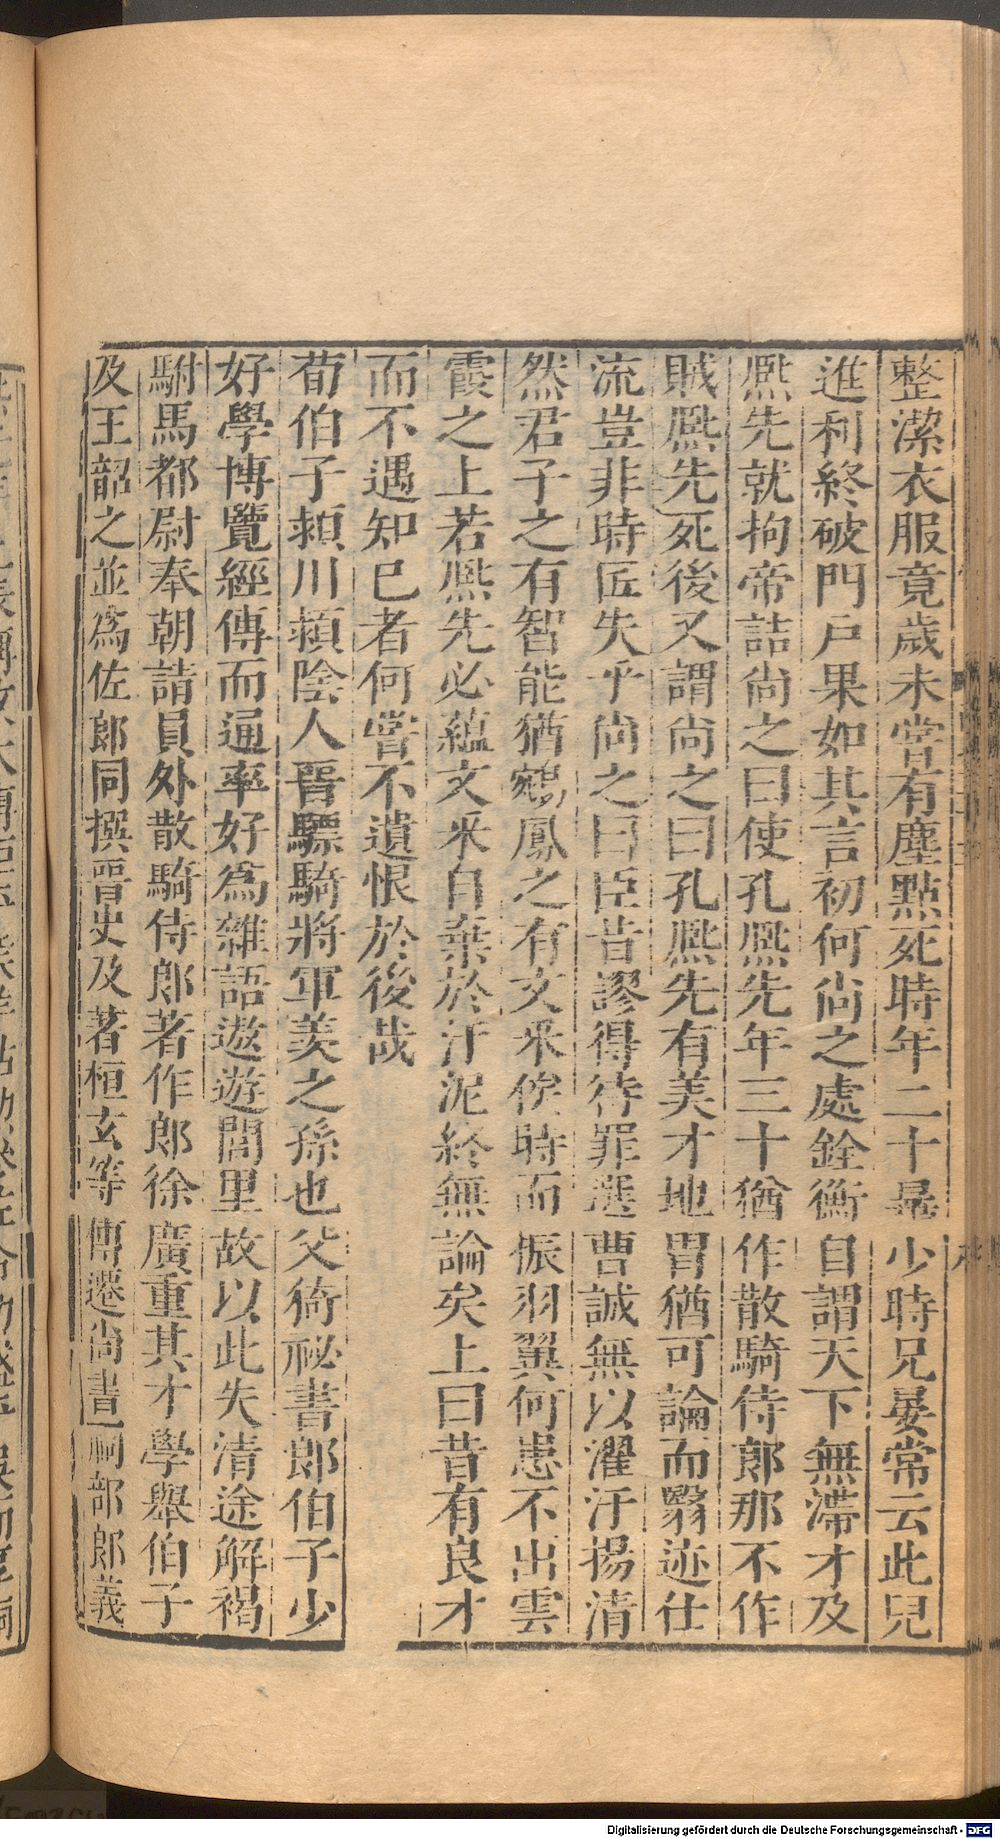 整潔衣服竟歲未嘗有塵點死時年二十晷少時兄晏常云此兒
進利終破門戸果如其言初何尚之處銓衡自謂天下無滯才及
熈先就拘帝詰尚之曰使孔熈先年三十猶作散騎侍郎那不作
賊熈先死後又謂尚之曰孔熈先有美才地胄猶可論而翳迹仕
流豈非時匠失乎尚之曰臣昔謬得待罪選曹誠無以濯汙揚清
然君子之有智能猶鵷鳳之有文采俟時而振羽翼何患不出雲
霞之上若熈先必蘊文采自棄於汙泥終無論矣上曰昔有良才
而不遇知已者何嘗不遺恨於後哉
荀伯子頴川頴陰人晉驃騎將軍羨之孫也父猗祕書郎伯子少
好學博覽經傳而通率好爲雜語遨遊閭里故以此失清途解褐
駙馬都尉奉朝請員外散騎侍郎著作郎徐廣重其才學舉伯子
及王韶之並爲佐郎同撰晉史及著桓玄等傳遷尚書祠部郎義
Digitalisierung gefördert durch die Deutsche Forschungsgemeinschaft - DFG